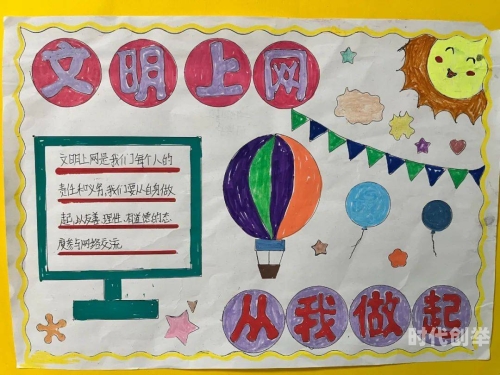 文明上网
文明上网是我们每个人的
责任和义务,我们要从自身做
起,以友善、理性、有道德的态
度参与网络交流.
从我做起
时代创举